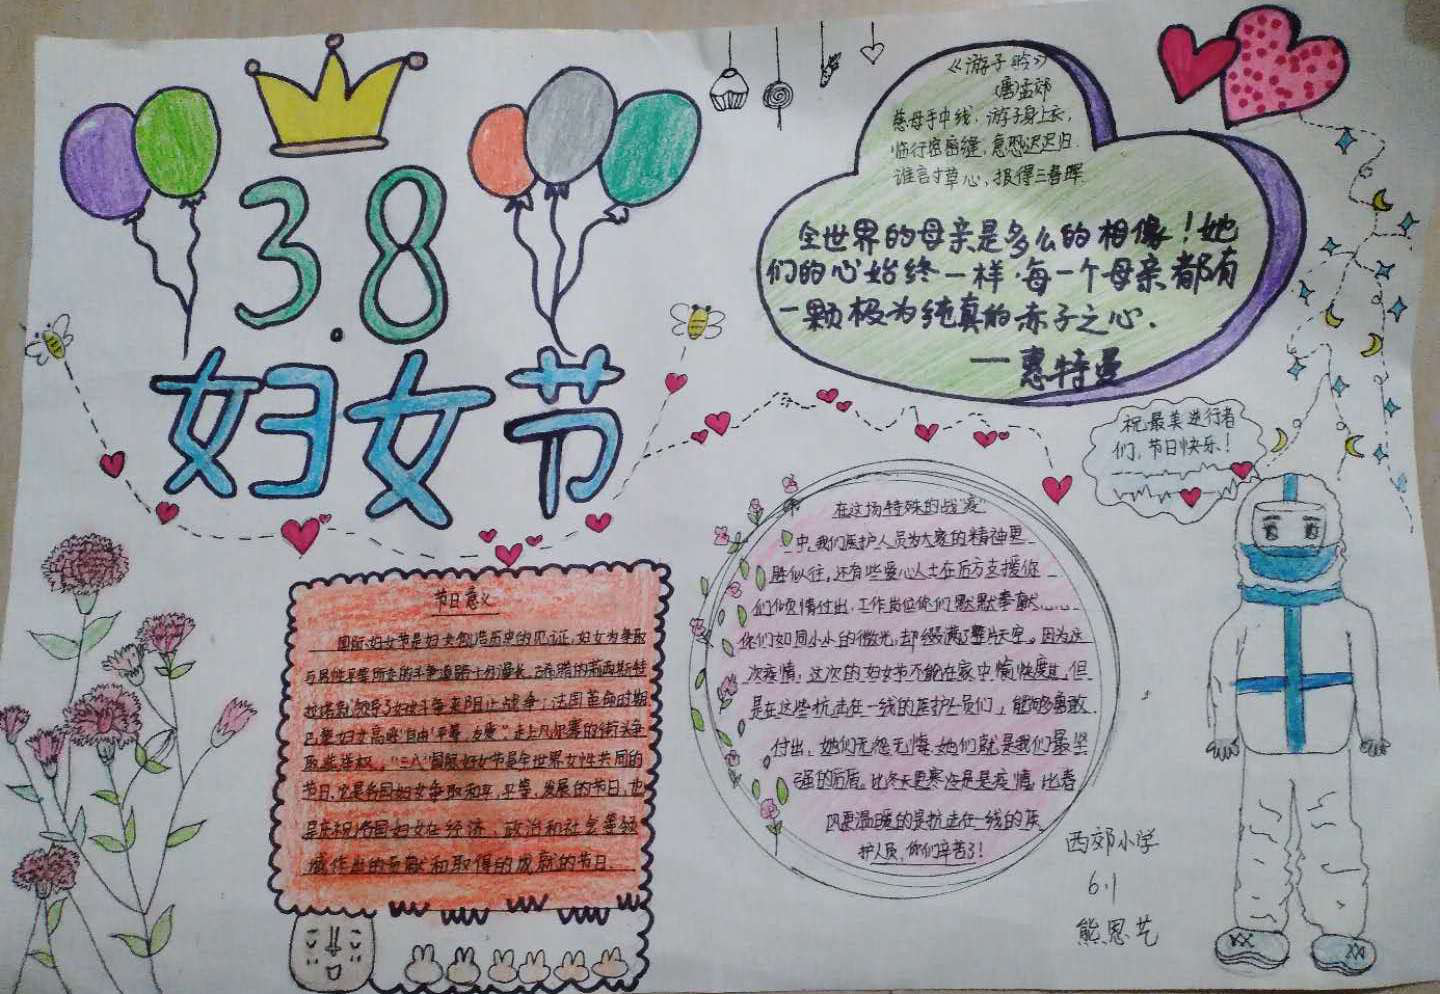 3.8
妇女节
《游子吟》
(唐)孟郊
慈母手中线，游子身上衣，
临行密密缝，意恐迟迟归.
谁言寸草心，报得三春晖.
全世界的母亲是多么的相像！她
们的心始终一样.每一个母亲都有
一颗极为纯真的赤子之心.
——惠特曼
祝最美逆行者
们，节日快乐！
节日意义
国际妇女节是妇女创造历史的见证，妇女为争取
与男性平等所走的斗争道路十分漫长，古希腊的莉西斯特
拉塔就领导了妇女斗争来阻止战争；法国革命时期
巴黎妇女高呼“自由‘平等、友爱”走上凡尔赛的街头争
取选举权。“三八”国际妇女节是全世界女性共同的
节日，它是各国妇女争取和平，平等，发展的节日，也
是庆祝各国妇女在经济、政治和社会等领
域作出的贡献和取得的成就的节日.
在这场特殊的战“疫”
中，我们医护人员为大家的精神更
胜似往，还有些爱心人士在后方支援你
们倾情付出，工作岗位你们默默奉献……
你们如同小小的微光，却缀满了整片天空。因为这
次疫情，这次的妇女节不能在家中愉快度过，但
是在这些抗击在一线的医护人员们，能够勇敢
付出，她们无怨无悔，她们就是我们最坚
强的后盾。比冬天更寒冷的是疫情，比春
风更温暖的是抗击在一线的医
护人员，你们辛苦了！
西郊小学
6.1
熊恩艺